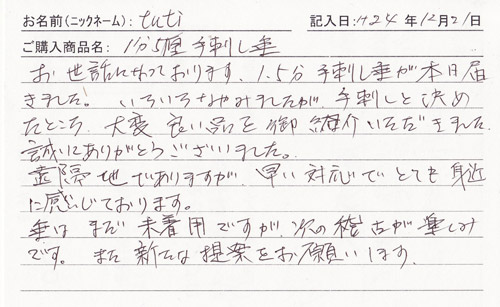 お名前(ニックネーム): tuti 記入日:H24年12月21日
ご購入商品名: 1分5厘 手刺し垂
お世話になっております。1.5分手刺し垂が本日届
きました! いろいろなやみましたが、手刺しと決め
たところ、大変良い品を御紹介いただきました。
誠にありがとうございました。
遠隔地でありますが、早い対応でとても身近
に感じております。
垂はまだ未着用ですが、次の稽古が楽しみ
です。また新たな提案をお願いします。